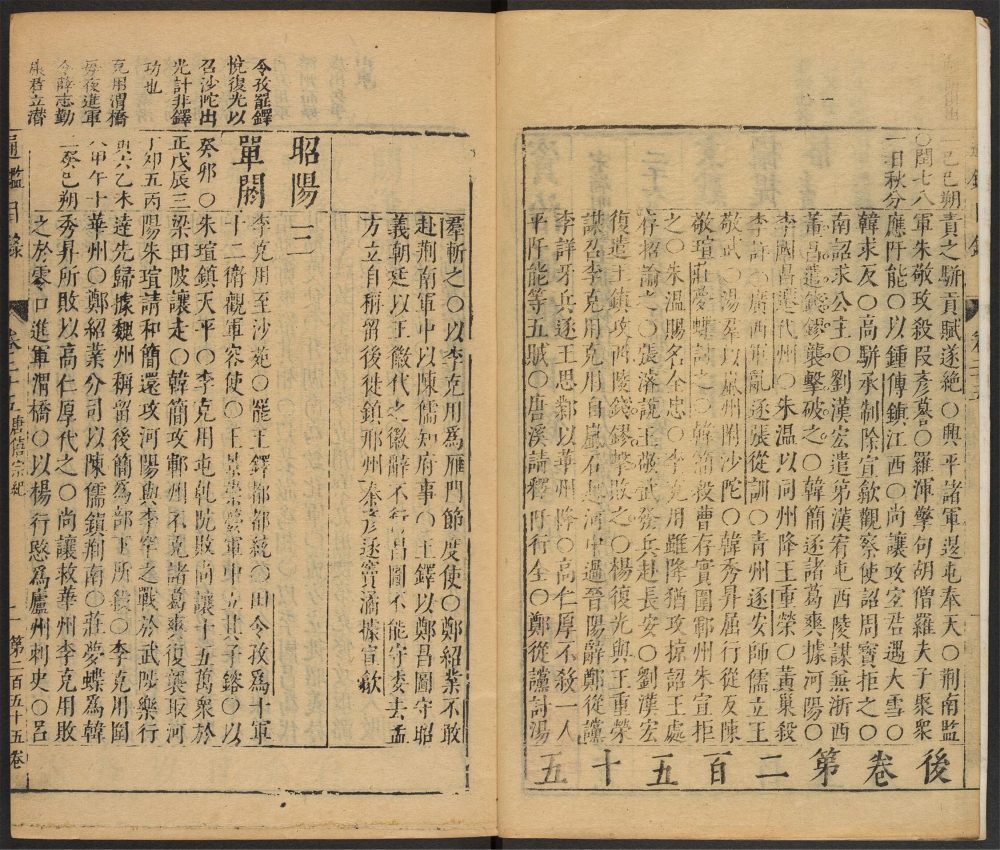 一己巳朔責之駢貢賦遂絕○興平諸軍退屯奉天○荊南監
○閏七八軍朱敬攻殺叚彥謩○羅渾擎句胡僧羅夫子衆衆
一丑秋分應阡能○以鍾傳鎮江西○尚讓攻宜君遇大雪○
韓求反○高駢承制除宣歙觀察使詔周寶拒之○
南詔求公主○劉漢宏遣弟漢宥屯西陵謀兼浙西
董昌遣錢鏐襲擊破之○韓簡逐諸葛爽據河陽○
李國昌遷代州○朱溫以同州降王重榮○黃巢殺
李詳○廣西軍亂逐張從訓○青州逐安師儒立王
敬武○湯羣以嵐州附沙陀○韓秀昇屈行從反陳
敬瑄莊夢蝶討之○韓簡救曹存實圍鄆州朱宣拒
之○朱溫賜名全忠○李克用雖降猶攻掠詔王處
存招諭之○張濬說王敬武發兵赴長安○劉漢宏
復遣王鎮攻西陵錢鏐擊敗之○楊復光與王重榮
謀召李克用克用自嵐石趣河中過晉陽辭鄭從讜
李詳牙兵逐王思鄴以華州降○高仁厚不殺一人
平阡能等五賊○唐溪請釋阡行全○鄭從讜討湯
後卷第二百五十五
羣斬之○以李克用爲雁門節度使○鄭紹業不敢
赴荊南軍中以陳儒知府事○王鐸以鄭昌圖守昭
義朝廷以王徽代之徽辭不行昌圖不能守委去孟
方立自稱留後徙鎮邢州○秦彥逐竇潏據宣歙
昭陽三
單閼
李克用至沙苑○罷王鐸都都統○田令孜爲十軍
十二衛觀軍容使○王景崇薨軍中立其子鎔○以
癸卯○朱瑄鎮天平○李克用屯乹阬敗尚讓十五萬衆於
正戊辰三梁田陂讓走○韓簡攻鄆州不克諸葛爽復襲取河
丁卯五丙陽朱瑄請和簡還攻河陽與李罕之戰於武陟樂行
寅六乙未達先歸據魏州稱留後簡爲部下所殺○李克用圍
八甲午十華州○鄭紹業分司以陳儒鎮荊南○莊夢蝶爲韓
二癸巳朔秀昇所敗以高仁厚代之○尚讓救華州李克用敗
之於零口進軍渭橋○以楊行愍爲廬州刺史○呂
令孜罷鐸
悅復光以
召沙陀出
光計非鐸
功也
克用渭橋
每夜進軍
令薛志勤
康君立潛
通鑑目錄 卷二十五 唐僖宗紀 一 第二百五十五卷